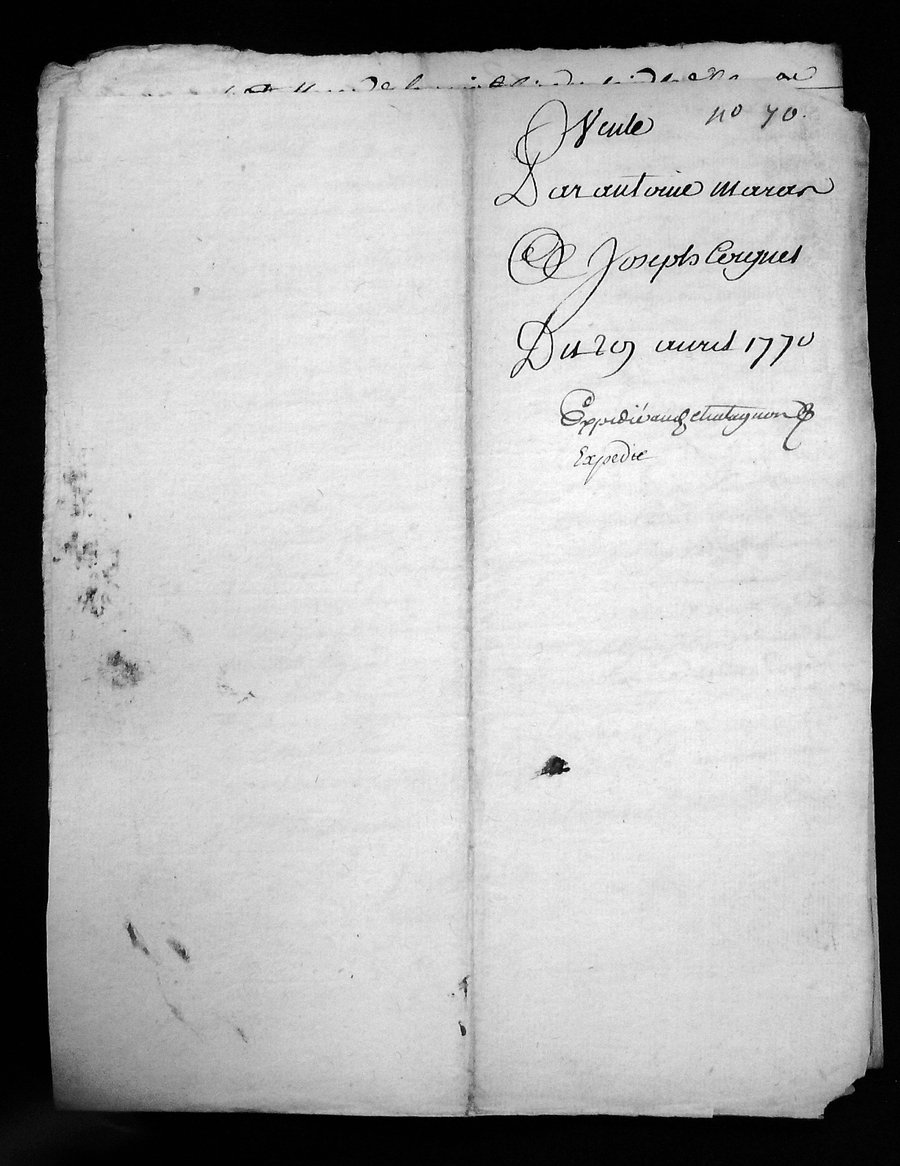 Vente no 70.
Par antoine maran
A Joseph Cergnel
Du 29 avril 1770
Expedié au chatagnon
Expedie